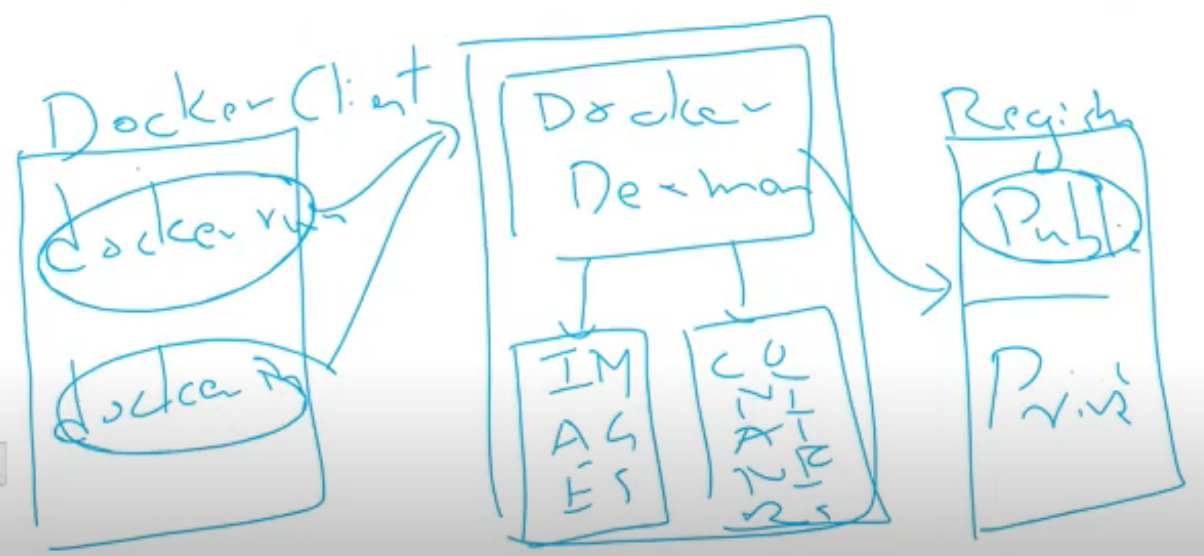 Docker Client
docker run
docker
Docker
Deamon
IM
AG
ES
CO
NT
AI
NE
RS
Registry
Public